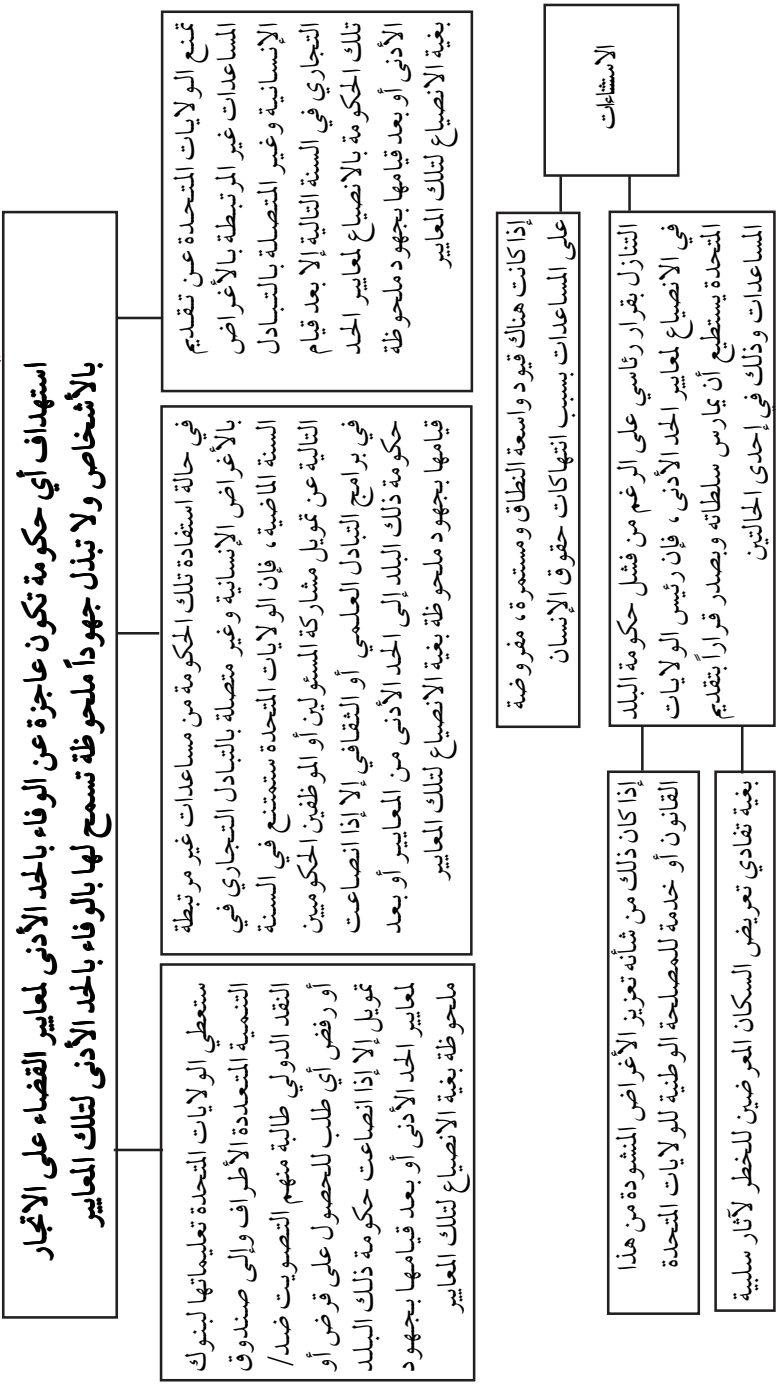 استهداف أي حكومة تكون عاجزة عن الوفاء بالحد الأدنى لمعايير القضاء على الاتجار
بالأشخاص ولا تبذل جهوداً ملحوظة تسمح لها بالوفاء بالحد الأدنى لتلك المعايير
تمنع الولايات المتحدة عن تقديم
المساعدات غير المرتبطة بالأغراض
الإنسانية وغير المتصلة بالتبادل
التجاري في السنة التالية إلا بعد قيام
تلك الحكومة بالانصياع لمعايير الحد
الأدنى أو بعد قيامها بجهود ملحوظة
بغية الانصياع لتلك المعايير
في حالة استفادة تلك الحكومة من مساعدات غير مرتبطة
بالأغراض الإنسانية وغير متصلة بالتبادل التجاري في
السنة الماضية، فإن الولايات المتحدة ستمتنع في السنة
التالية عن تمويل مشاركة المسئولين أو الموظفين الحكوميين
في برامج التبادل العلمي أو الثقافي إلا إذا انصاعت
حكومة ذلك البلد إلى الحد الأدنى من المعايير أو بعد
قيامها بجهود ملحوظة بغية الانصياع لتلك المعايير
ستعطي الولايات المتحدة تعليماتها لبنوك
التنمية المتعددة الأطراف وإلى صندوق
النقد الدولي طالبة منهم التصويت ضد/
أو رفض أي طلب للحصول على قرض أو
تمويل إلا إذا انصاعت حكومة ذلك البلد
لمعايير الحد الأدنى أو بعد قيامها بجهود
ملحوظة بغية الانصياع لتلك المعايير
الاستثناءات
إذا كانت هناك قيود واسعة النطاق ومستمرة، مفروضة
على المساعدات بسبب انتهاكات حقوق الإنسان
التنازل بقرار رئاسي على الرغم من فشل حكومة البلد
في الانصياع لمعايير الحد الأدنى، فإن رئيس الولايات
المتحدة يستطيع أن يمارس سلطاته ويصدر قراراً بتقديم
المساعدات وذلك في إحدى الحالتين
إذا كان ذلك من شأنه تعزيز الأغراض المنشودة من هذا
القانون أو خدمة للمصلحة الوطنية للولايات المتحدة
بغية تفادي تعريض السكان المعرضين للخطر لآثار سلبية